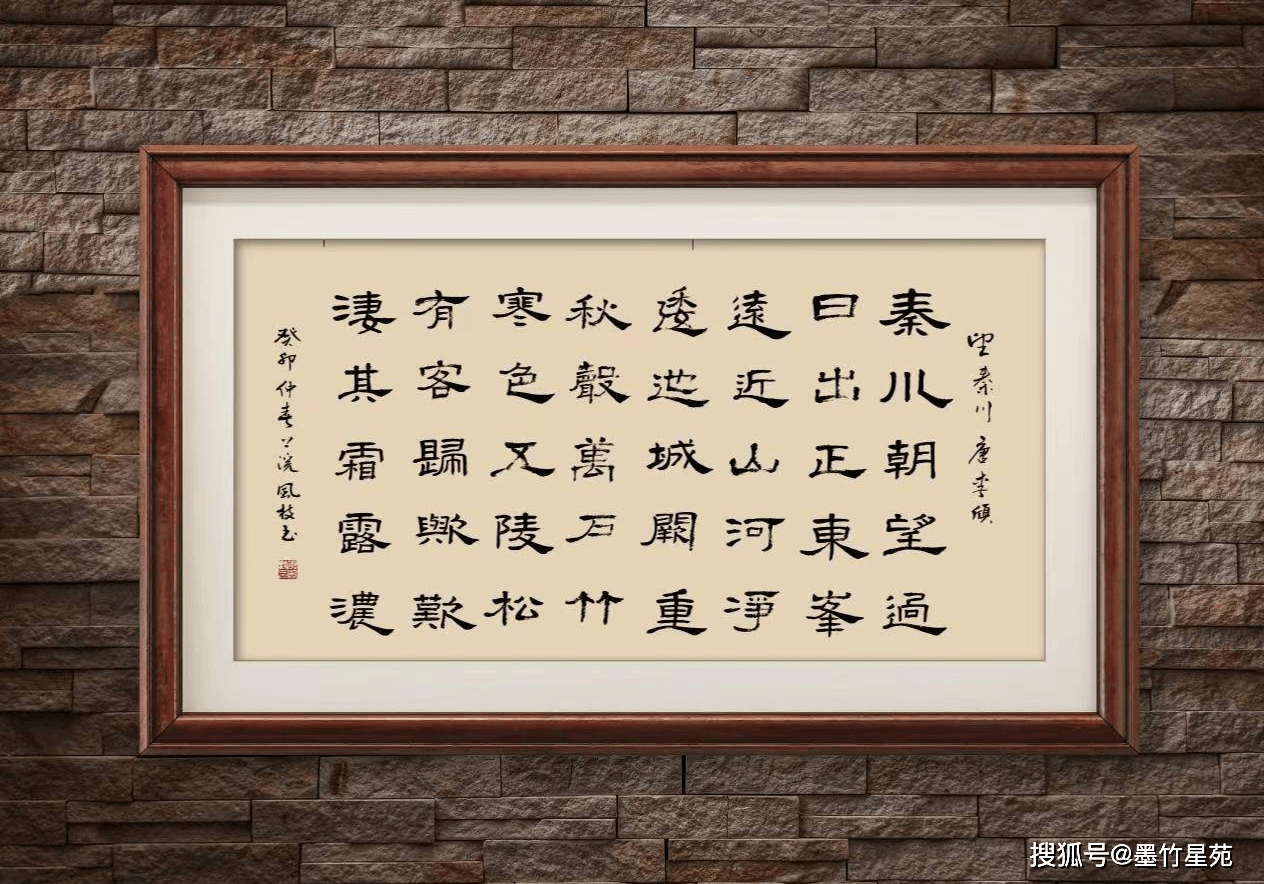 望秦川 唐李頎
秦川朝望逈
日出正東峯
遠近山河淨
逶迤城闕重
秋聲萬戶竹
寒色五陵松
有客歸歟歎
淒其霜露濃
癸卯仲春上浣風枝书
搜狐号@墨竹星苑